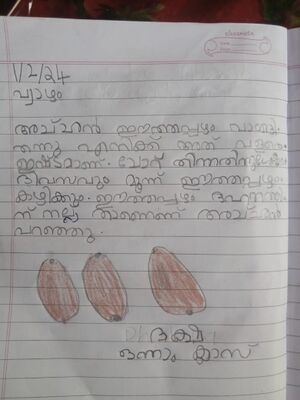 classmate
1/2/24
വ്യാഴം
അച്ഛൻ ഈന്തപ്പഴം വാങ്ങി
തന്നു എനിക്ക് അത് വളരെ
ഇഷ്ടമാണ്. ചോറ് തിന്നതിനുശേഷം
ദിവസവും മൂന്ന് ഈന്തപ്പഴം
കഴിക്കും. ഈന്തപ്പഴം ദഹനത്തി
ന് നല്ല താണെന്ന് അച്ഛൻ
പറഞ്ഞു.
ഒന്നാം ക്ലാസ്